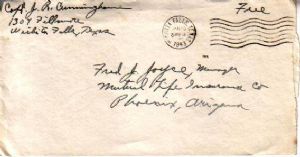 Capt. J. R. Cunningham
1304 Fillmore
Wichita Falls, Texas
Free
WICHITA FALLS, TEXAS
1943
Fred J. Joyce, Manager
Mutual Life Insurance Co
Phoenix, Arizona